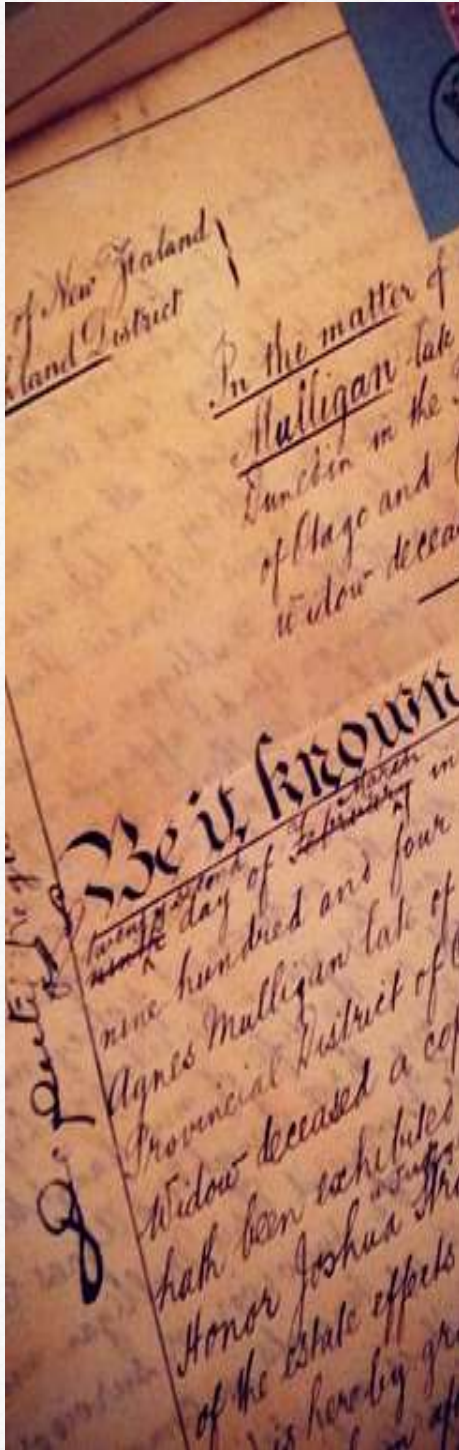 of New Zealand
land District
In the matter of
Mulligan late
Dunedin in the
of Otago and
Widow decea
Be it known
March
twenty second day of February in
nine hundred and four
Agnes Mulligan late of
Provincial District of O
Widow deceased a cop
hath been exhibited
Honor Joshua Stra
of the estate effects
is hereby gra
Deputy Regis